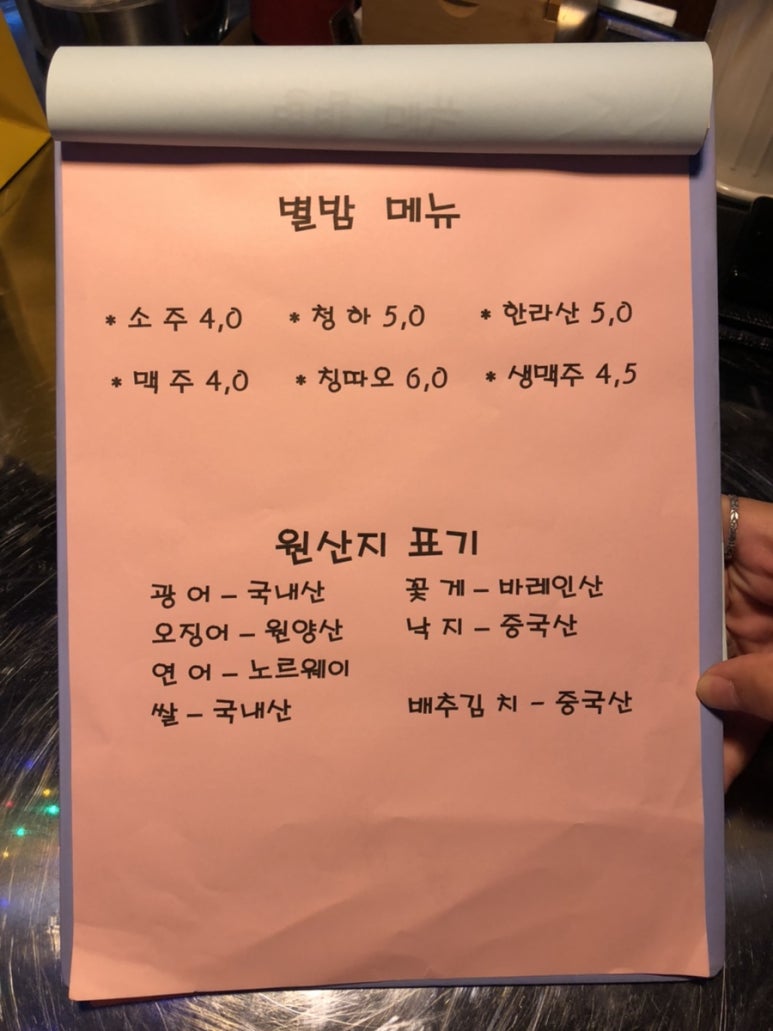 별밤 메뉴
* 소 주 4,0 * 청 하 5,0 * 한라산 5,0
* 맥 주 4,0 * 칭따오 6,0 * 생맥주 4,5
원산지 표기
광 어 – 국내산 꽃 게 – 바레인산
오징어 – 원양산 낙 지 – 중국산
연 어 – 노르웨이
쌀 – 국내산 배추김 치 - 중국산